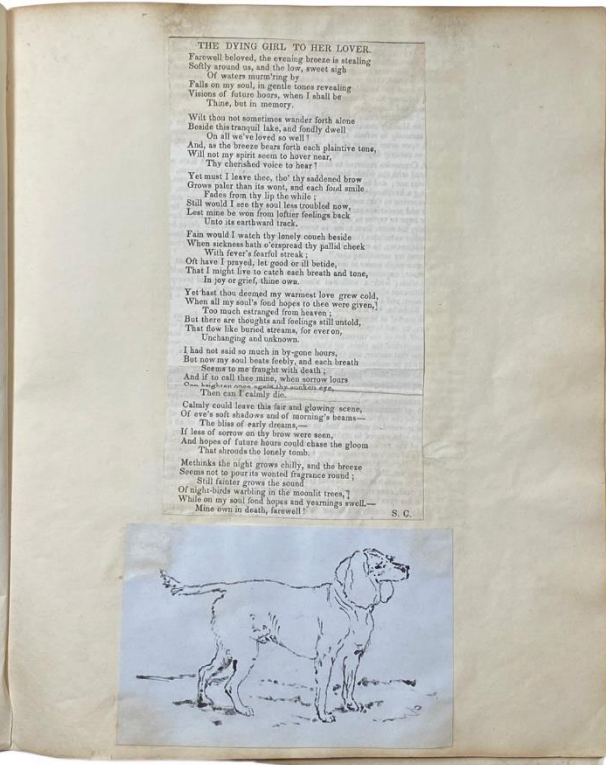 THE DYING GIRL TO HER LOVER.
Farewell beloved, the evening breeze is stealing
Softly around us, and the low, sweet sigh
Of waters murm'ring by
Falls on my soul, in gentle tones revealing
Visions of future hours, when I shall be
Thine, but in memory.
Wilt thou not sometimes wander forth alone
Beside this tranquil lake, and fondly dwell
On all we've loved so well?
And, as the breeze bears forth each plaintive tone,
Will not my spirit seem to hover near,
Thy cherished voice to hear?
Yet must I leave thee, tho' thy saddened brow
Grows paler than its wont, and each fond smile
Fades from thy lip the while;
Still would I see thy soul less troubled now,
Lest mine be won from loftier feelings back
Unto its earthward track.
Fain would I watch thy lonely couch beside
When sickness hath o'erspread thy pallid cheek
With fever's fearful streak;
Oft have I prayed, let good or ill betide,
That I might live to catch each breath and tone,
In joy or grief, thine own.
Yet hast thou deemed my warmest love grew cold,
When all my soul's fond hopes to thee were given,
Too much estranged from heaven;
But there are thoughts and feelings still untold,
That flow like buried streams, for ever on,
Unchanging and unknown.
I had not said so much in by-gone hours,
But now my soul beats feebly, and each breath
Seems to me fraught with death;
And if to call thee mine, when sorrow lours
Can brighten once again thy sunken eye,
Then can I calmly die.
Calmly could leave this fair and glowing scene,
Of eve's soft shadows and of morning's beams—
The bliss of early dreams,—
If less of sorrow on thy brow were seen,
And hopes of future hours could chase the gloom
That shrouds the lonely tomb.
Methinks the night grows chilly, and the breeze
Seems not to pour its wonted fragrance round;
Still fainter grows the sound
Of night-birds warbling in the moonlit trees,
While on my soul fond hopes and yearnings swell—
Mine own in death, farewell!
S. C.